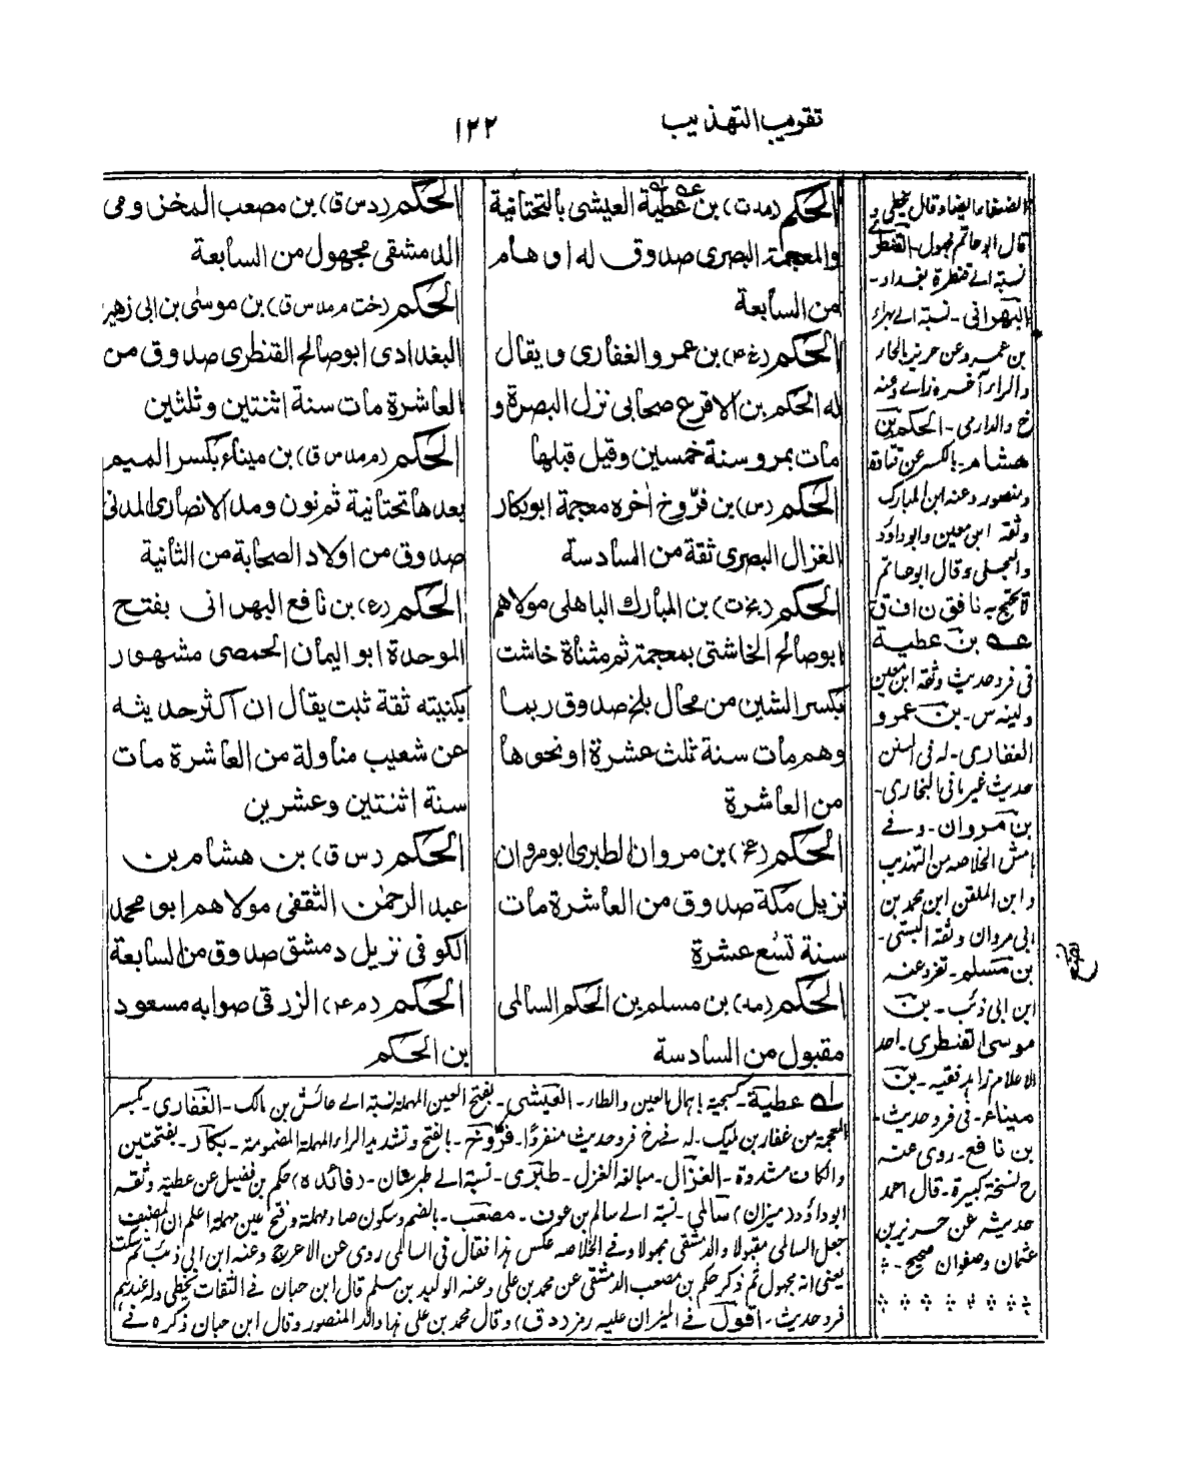 تقريب التهذيب
١٢٢
الحكم (مدت) بن عطية العيشى بالتحتانية
والمعجمة البصرى صدوق له اوهام
من السابعة
الحكم (خ ٤) بن عمرو الغفارى ويقال
له الحكم بن الاقرع صحابى نزل البصرة و
مات بمرو سنة خمسين وقيل قبلها
الحكم (س) بن فرّوخ اخره معجمة ابوبكار
الغزال البصرى ثقة من السادسة
الحكم (بخ ت) بن المبارك الباهلى مولاهم
ابوصالح الخاشتى بمعجمة ثم مثناة خاشت
بكسر الشين من محال بلخ صدوق ربما
وهم مات سنة ثلث عشرة او نحوها
من العاشرة
الحكم بن مروان الطبرى ابومروان
نزيل مكة صدوق من العاشرة مات
سنة تسع عشرة
الحكم (مد) بن مسلم بن الحكم السالمى
مقبول من السادسة
الحكم (دس ق) بن مصعب المخزومى
الدمشقى مجهول من السابعة
الحكم (خت م مد س ق) بن موسى بن ابى زهير
البغدادى ابوصالح القنطرى صدوق من
العاشرة مات سنة اثنتين وثلثين
الحكم (م مد س ق) بن ميناء بكسر الميم
بعدها تحتانية ثم نون ومد الانصارى المدنى
صدوق من اولاد الصحابة من الثانية
الحكم (ع) بن نافع البهرانى بفتح
الموحدة ابو اليمان الحمصى مشهور
بكنيته ثقة ثبت يقال ان اكثر حديثه
عن شعيب مناولة من العاشرة مات
سنة اثنتين وعشرين
الحكم (س ق) بن هشام بن
عبد الرحمٰن الثقفى مولاهم ابو محمد
الكوفى نزيل دمشق صدوق من السابعة
الحكم (م ٤) الزرقى صوابه مسعود
بن الحكم
عطية- كسمية باهمال العين والطاء- العيشى- بفتح العين المهملة نسبة الے عائش بن مالك- الغفارى- بكسر
المعجمة من غفار بن مليك- له فے خ فرد حديث منفردا- فرّوخ- بالفتح وتشديد الراء المهملة المضمومة- بكار- بفتحتين
والكاف مشددة- الغزال- مبالغه الغزل- طبرى- نسبة الے طبرستان- (فائده) حكم بن فضيل عن عطيه وثقه
ابوداؤد (ميزان) سالمى- نسبة الے سالم بن عوف- مصعب- بالضم وسكون صاد مهملة وفتح عين مهملة اعلم ان المصنف
جعل السالمى مقبولا والدمشقى مجهولا وفے الخلاصه عكس هذا فقال فى السالمى روى عن الاعرج وعنه ابن ابى ذئب ثم سكت
يعنى انه مجهول ثم ذكر حكم بن مصعب الدمشقى عن محمد بن على وعنه الوليد بن مسلم قال ابن حبان فے الثقات يخطى وله عندهم
فرد حديث- اقول فے الميزان عليه رمز (د ق) وقال محمد بن على هذا والد المنصور وقال ابن حبان ذكره فے
الضعفاء ايضا وقال يخطى و
قال ابو حاتم مجهول- القنطرى
نسبة الے قنطرة بغداد-
البهرانى- نسبة الے بهراء
بن عمرو عن حريز بالحاء
والراء آخره زاے وعنه
خ والدارمى- الحكم بن
هشام- بالكسر عن قتادة
ومنصور وعنه ابن المبارك
وثقه ابن معين وابوداؤد
والعجلى وقال ابوحاتم
لا يحتج به
بن عطية
فى فرد حديث وثقه ابن معين
ولينه س- بن عمرو
الغفارى- له فى السنن
حديث غير ما فى البخارى-
بن مروان- وفے
هامش الخلاصه من التهذيب
وابن الملقن ابن محمد بن
ابى مروان وثقه البستى-
بن مسلم- تفرد عنه
ابن ابى ذئب- بن
موسى القنطرى- احد
الاعلام زاهد فقيه- بن
ميناء- فى فرد حديث-
بن نافع- روى عنه
خ نسخة كبيرة- قال احمد
حديثه عن حريز بن
عثمان وصفوان صحيح-